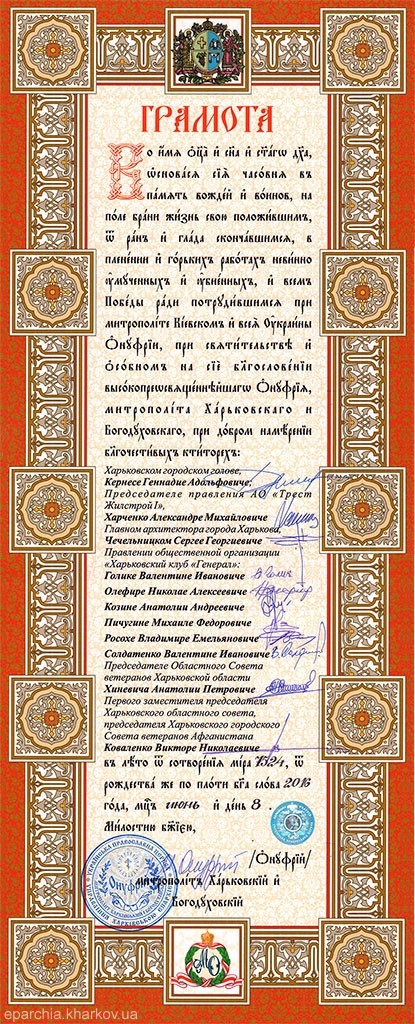 ГРАМОТА
Во и́мя ѻц҃а̀ и҆ сн҃а и҆ ст҃а́гѡ дх҃а,
ѡ҆снова́ся сїѧ̀ часо́внѧ въ
па́мять вожде́й и҆ во́инов, на
по́ле бра́ни жи́знь свою̀ положи́вшимъ,
ѿ ра́нъ и҆ гла́да сконча́вшимся, в
плене́нии и҆ го́рькихъ рабо́тах неви́нно
ѹ҆му́ченныхъ и҆ ѹ҆бие́нныхъ, и҆ всемъ
Побе́ды ра́ди потруди́вшимся при
митрополі́те Кі́евскомъ и҆ всеѧ̀ Оу҆краи́ны
Ѻ҆ну́фрїи, при свѧти́тельстве и҆
ѻ҆со́бномъ на сїѐ благослове́нии
высокопреѡсвѧще́ннѣйшагѡ Ѻ҆ну́фрїѧ,
митрополі́та Ха́рьковскаго и
Богоду́ховскаго, при до́бром наме́рении
бл҃гочести́выхъ кти́торехъ:
Харьковском городском голове,
Кернесе Геннадие Адольфовиче;
Председателе правления АО «Трест
Жилстрой I»,
Харченко Александре Михайловиче
Главном архитектора города Харькова,
Чечельницком Сергее Георгиевиче
Правлении общественной организации
«Харьковский клуб «Генерал»:
Голике Валентине Ивановиче
Олефире Николае Алексеевиче
Козине Анатолии Андреевиче
Пичугине Михаиле Федоровиче
Росохе Владимире Емельяновиче
Солдатенко Валентине Ивановиче
Председателе Областного Совета
ветеранов Харьковской области
Хиневича Анатолии Петровиче
Первого заместителя председателя
Харьковского областного совета,
председателя Харьковского городского
Совета ветеранов Афганистана
Коваленко Викторе Николаевиче
въ лѣ́то ѿ сотворе́нїѧ мі́ра 7524, ѿ
рождества́ же по пло́ти бг҃а сло́ва 2016
го́да, мц҃ъ июнь и҆ де́нь 8.
Ми́лостию бж҃їею,
/Ѻ҆ну́фрїй/
митрополі́тъ Ха́рьковскїй и҆
Богоду́ховскїй
Онуфрій
МО
eparchia.kharkov.ua